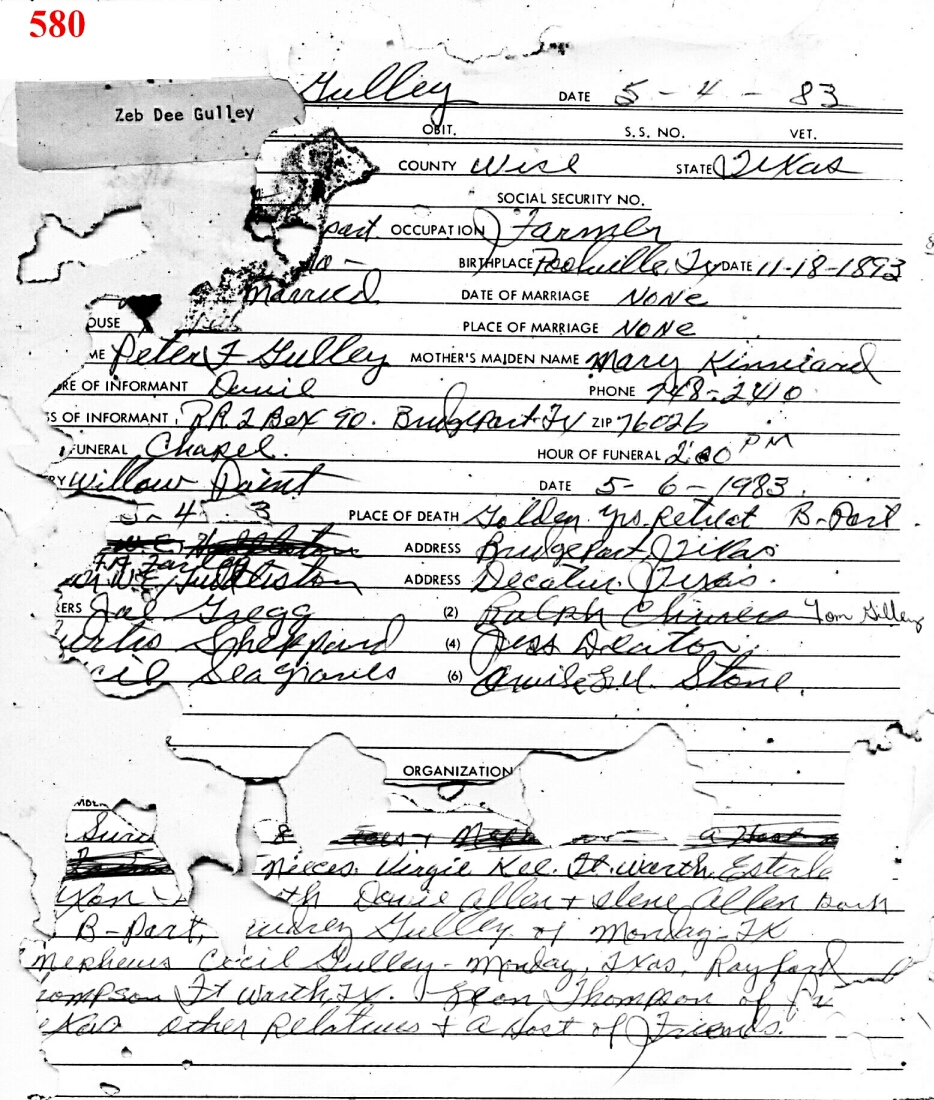 580
Gulley DATE 5 - 4 - 83
Zeb Dee Gulley
OBIT. S.S. NO. VET.
COUNTY Wise STATE Texas
SOCIAL SECURITY NO.
port. OCCUPATION Farmer
BIRTHPLACE Poolville, Tx DATE 11-18-1893
Married DATE OF MARRIAGE NONE
OUSE PLACE OF MARRIAGE NONE
ME Peter F Gulley MOTHER'S MAIDEN NAME Mary Kinniard
RE OF INFORMANT PHONE 748-2410
S OF INFORMANT R.R. 2 Box 90. Bridgeport Tx ZIP 76026
FUNERAL Chapel. HOUR OF FUNERAL 2:00 PM
RY Willow Point DATE 5-6-1983.
5-4 3 PLACE OF DEATH Golden Yrs. Retreat B-Port.
ADDRESS Bridgeport, Texas
Huddleston ADDRESS Decatur, Texas.
RERS Joe Gregg (2) Tom Gilley
urtis Sheppard (4) Jess Deaton,
cil Seagraves (6) Stone.
ORGANIZATION
Nieces. Virgie Kee. Ft. Worth.
th Dovie Allen + Ilene Allen both
B-Port, Gulley of Monday-TX
Nephews Cecil Gulley - Monday, Texas, Rayford
ompson Ft Worth, TX. Thompson of
exas other Relatives + a Host of Friends.